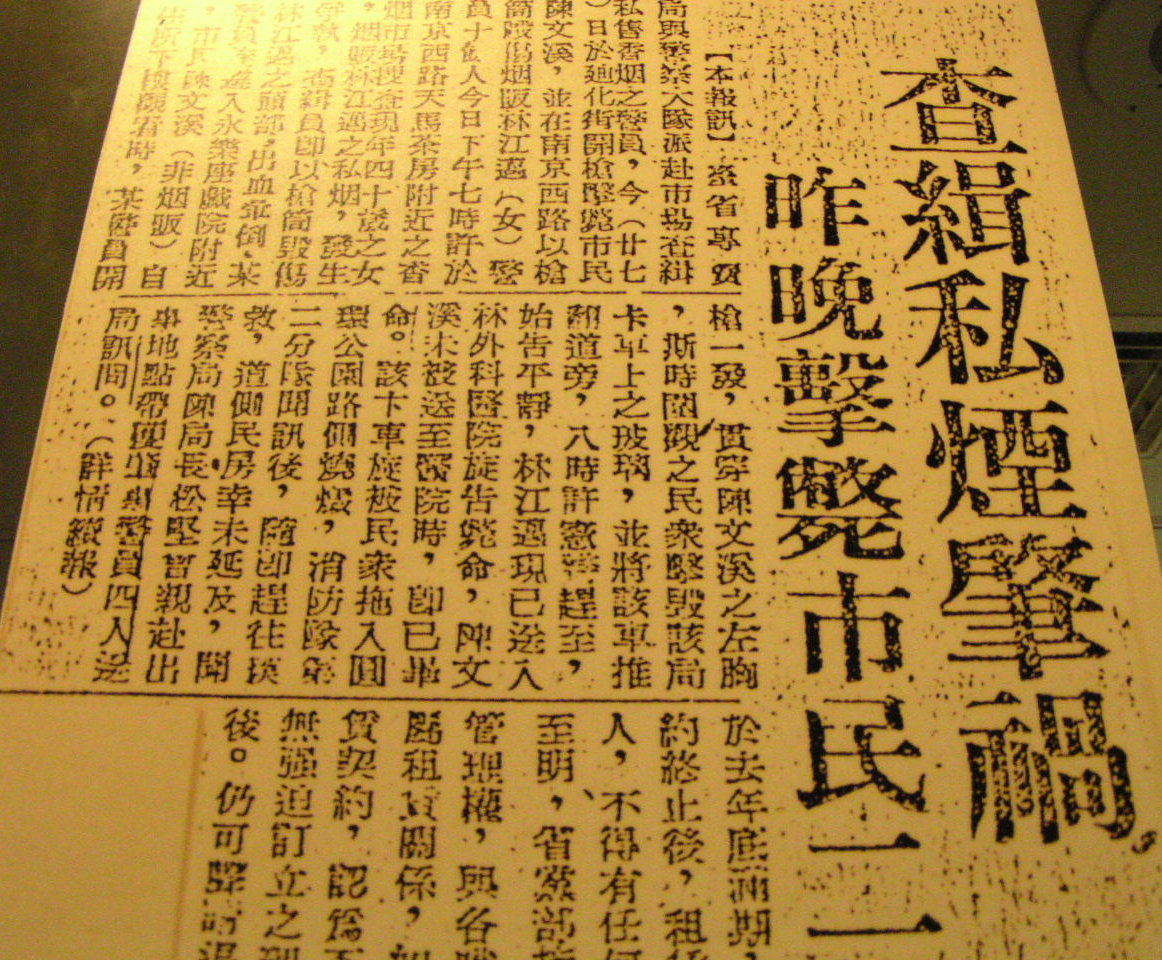 查緝私煙肇禍
昨晚擊斃市民二
【本報訊】臺省專賣
局與警察大隊派赴市場查緝
私售香烟之警員,今(廿七
)日於廸化街開槍擊斃市民
陳文溪,並在南京西路以槍
筒毆傷烟販林江邁(女)警
員十餘人今日下午七時許於
南京西路天馬茶房附近之香
烟市場搜查現年四十歲之女
烟販林江邁之私烟,發生
爭執,查緝員即以槍筒毀傷
林江邁之頭部,出血暈倒,某
警員 進入永樂座戲院附近
,市民陳文溪(非烟販)自
住所下樓觀看時,某警員開
槍一發,貫穿陳文溪之左胸
,斯時圍觀之民衆擊毀該局
卡車上之玻璃,並將該車推
翻道旁,八時許憲警趕至,
始告平靜,林江邁現已送入
林外科醫院旋告斃命,陳文
溪未被送至醫院時,卽已畢
命。該卡車旋被民衆拖入圓
環公園路側燒燬,消防隊第
二分隊聞訊後,隨卽趕往撲
救,道側民房幸未延及,聞
警察局陳局長松堅曾親赴出
事地點帶 警員四人送
局訊問。(詳情續報)
於去年底滿期,
約終止後,租
人,不得有任何
至明,省黨部
管理權,與各
屬租賃關係,
賃契約,認爲
無强迫訂立之
後。仍可